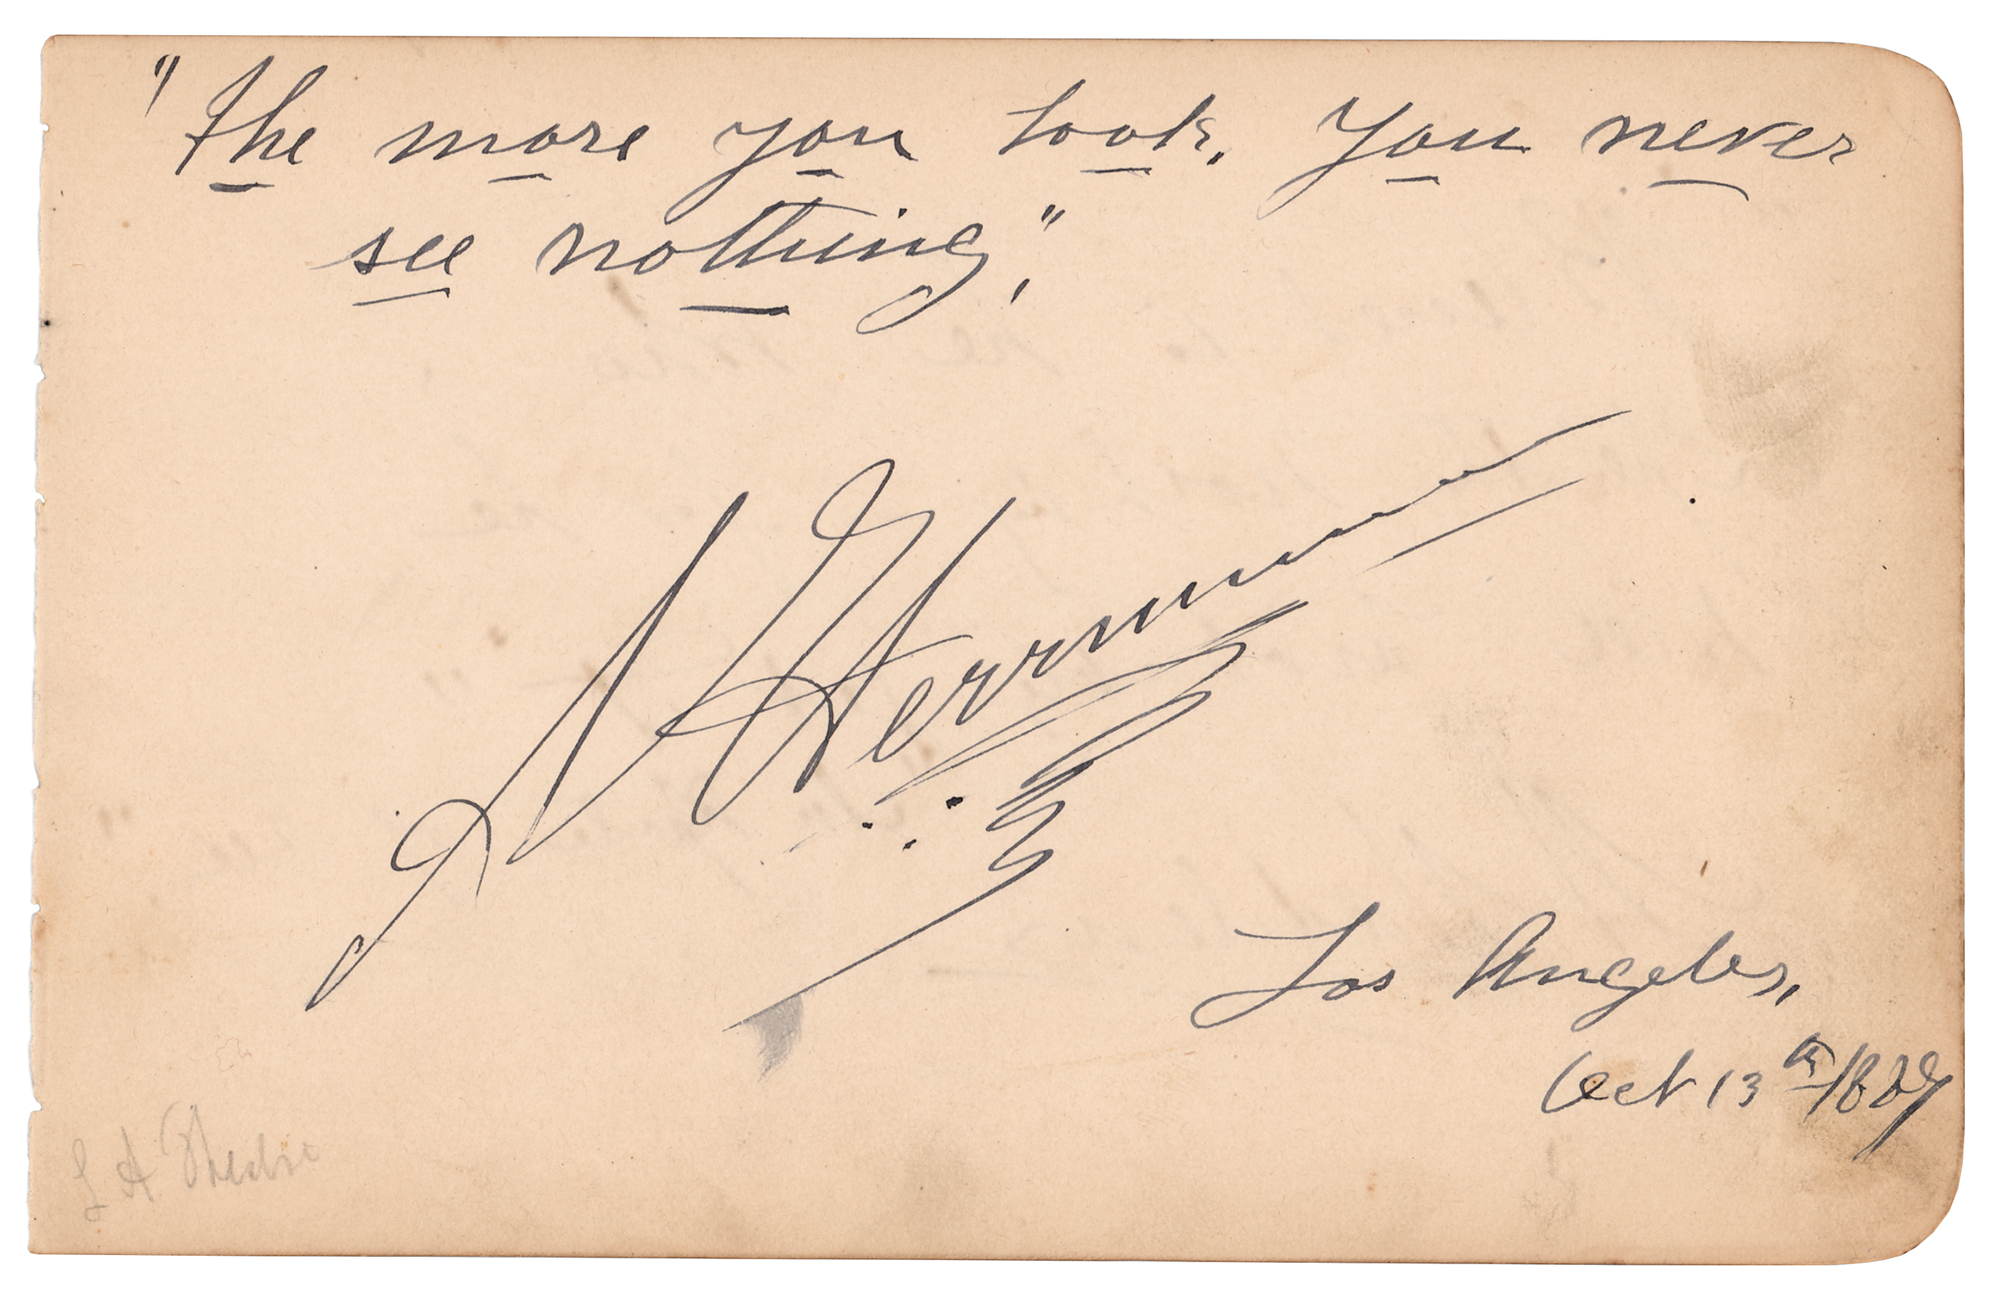 "The more you look, You never
see nothing,"
A Herrmann
Los Angeles,
Oct 13th 1889
L A